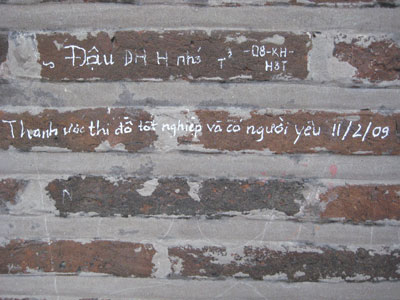 Đậu ĐH H nhớ T3 -08-KH-
H3T
Thanh ước thi đỗ tốt nghiệp và có người yêu 11/2/09